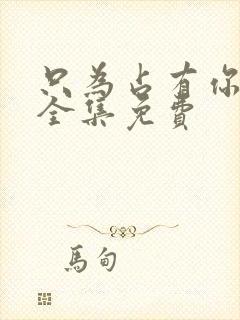 只為占有你
全集免費
馬甸